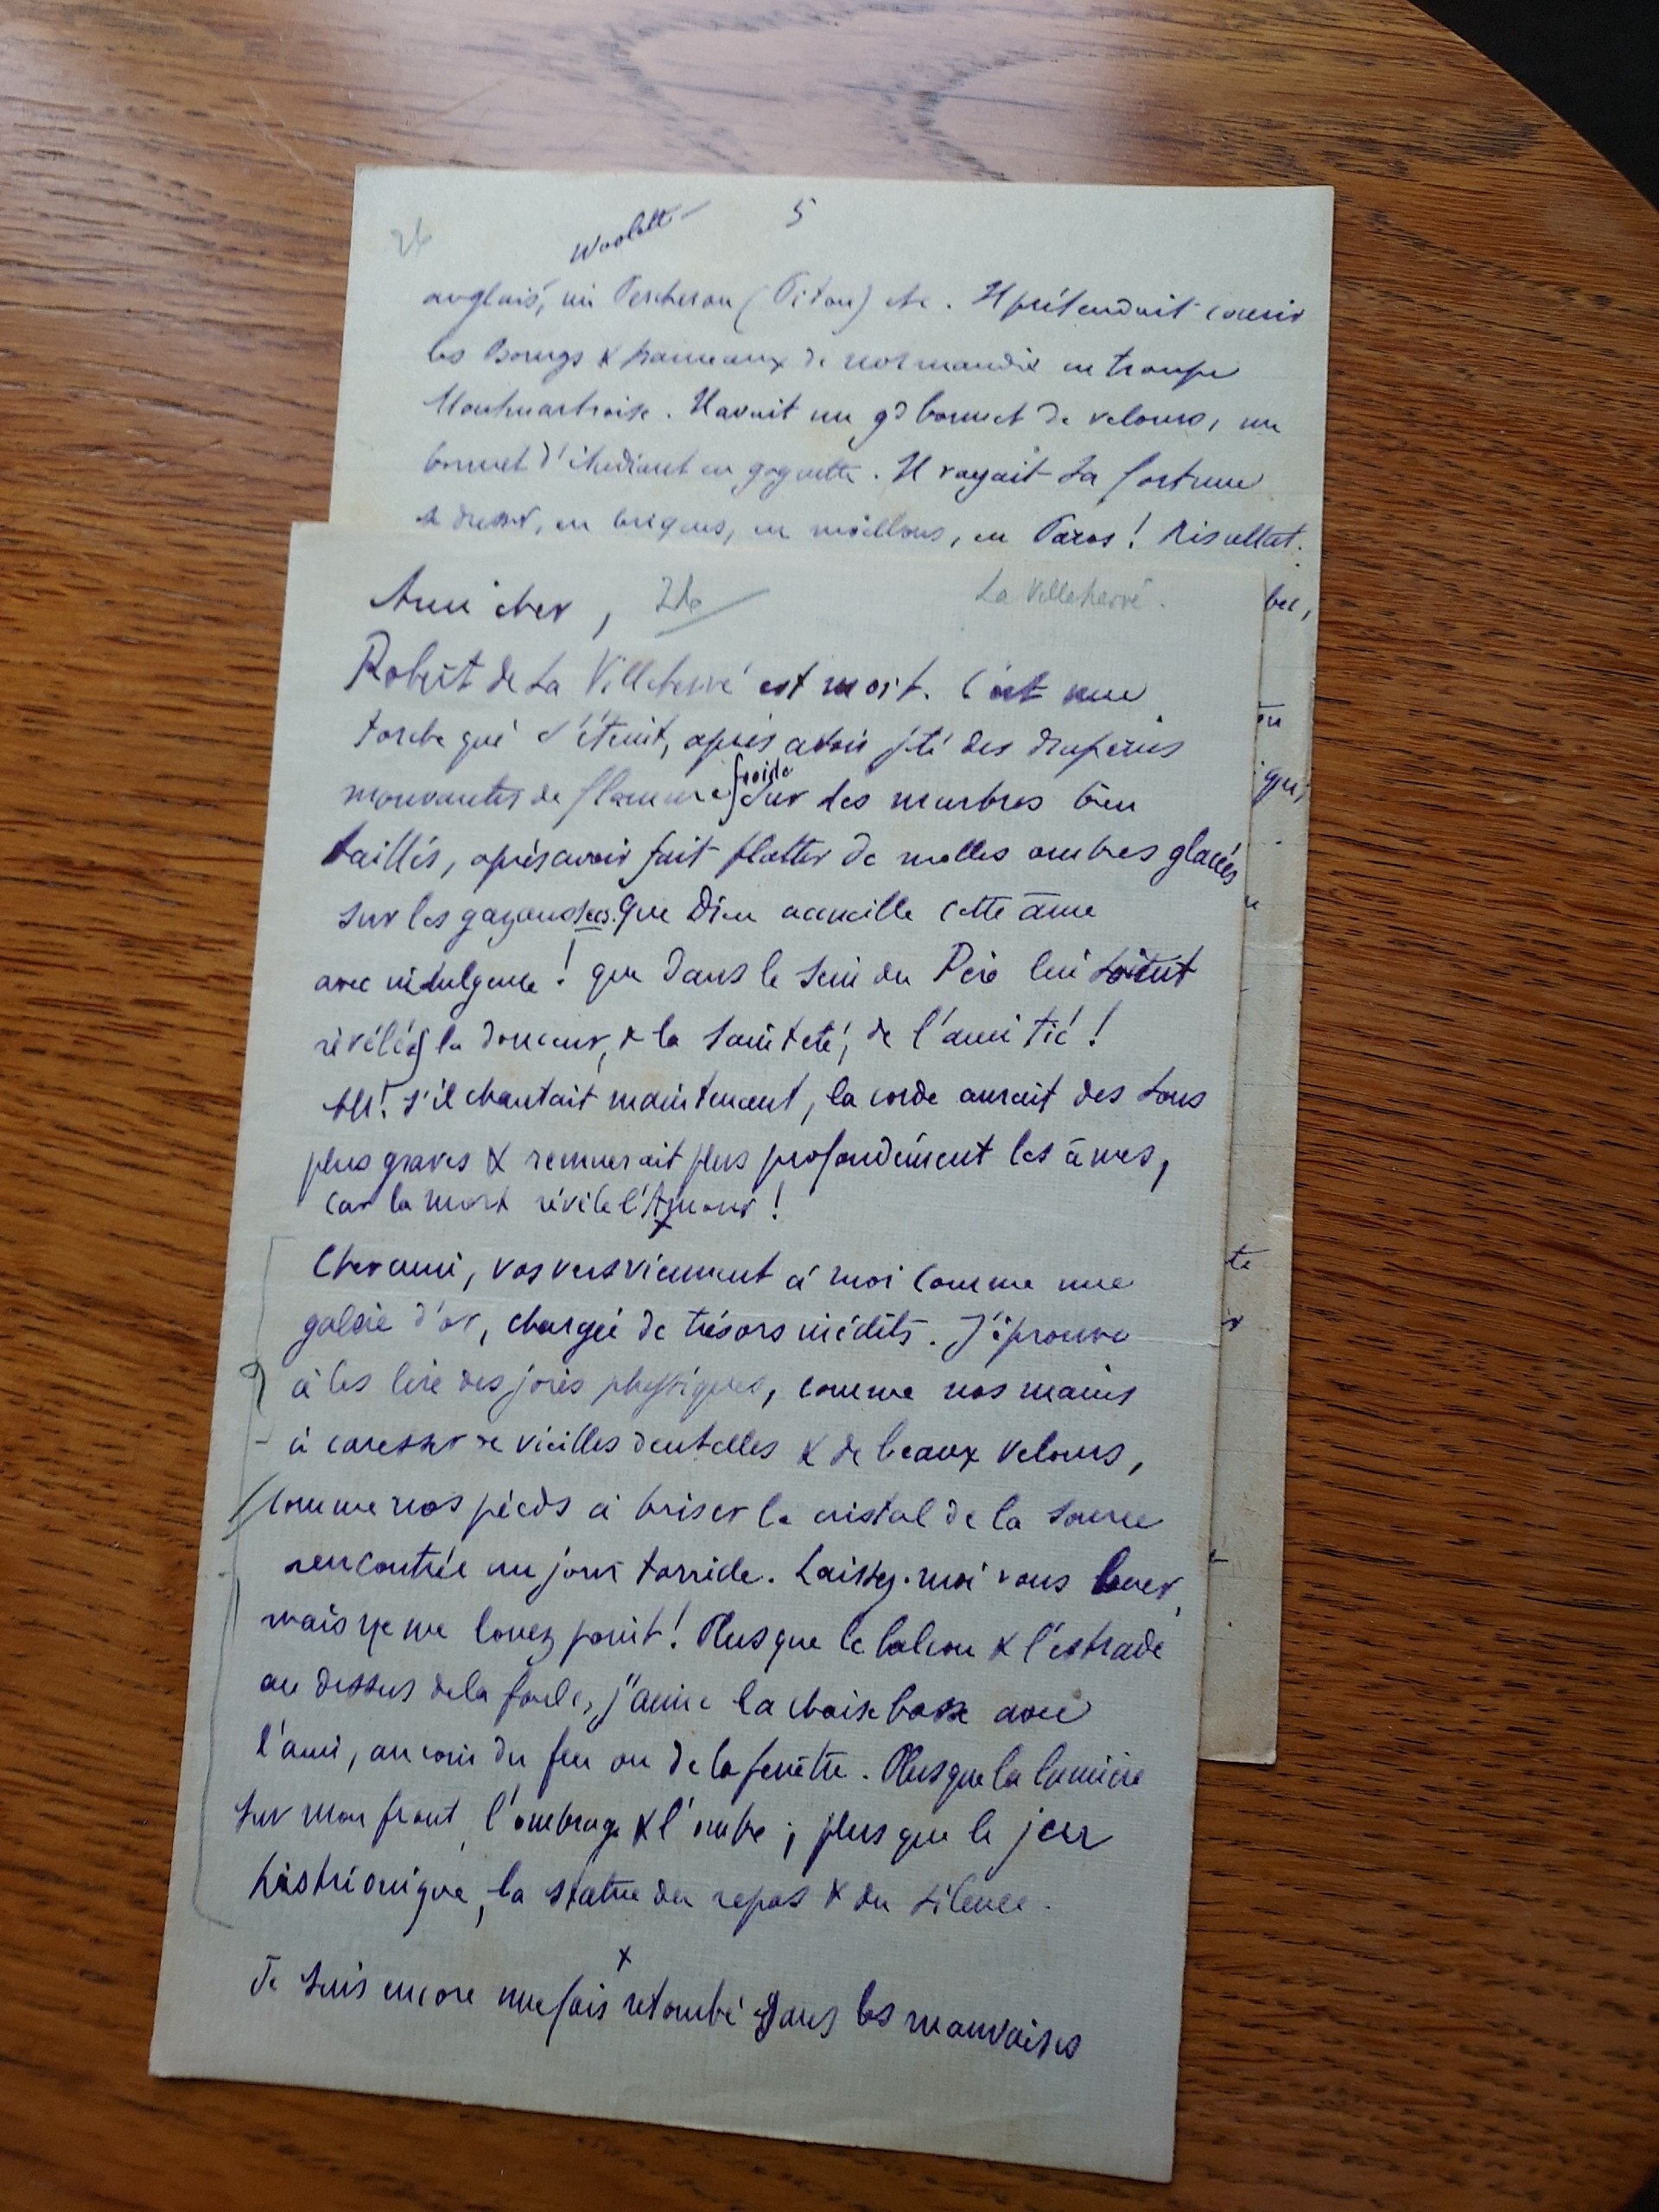 26
Woolett
5
anglais, un Percheron (Piton) etc. Il prétendait courir
les Bourgs & hameaux de normandie en troupe
Montmartroise. Il avait un gd bonnet de velours, un
bonnet d'étudiant en goguette. Il voyait sa fortune
se dresser, en briques, en moellons, en Paros! Résultat.
Ami cher,
26
La Villehervé.
Robert de La Villehervé est mort. C'est une
torche qui s'éteint, après avoir jeté des draperies
mouvantes de flamme froide sur des marbres bien
taillés, après avoir fait flotter de molles ombres glacées
sur les gazons secs. Que Dieu accueille cette âme
avec indulgence! que dans le sein du Père lui soient
révélées la douceur, & la sainteté, de l'amitié!
Ah! s'il chantait maintenant, la corde aurait des sons
plus graves & remuerait plus profondément les âmes,
car la mort révèle l'Amour!
Cher ami, vos vers viennent à moi comme une
galère d'or, chargée de trésors inédits. J'éprouve
à les lire des joies physiques, comme nos mains
à caresser de vieilles dentelles & de beaux velours,
comme nos pieds à briser le cristal de la source
rencontrée un jour torride. Laissez-moi vous louer,
mais ne me louez point! Plus que le balcon & l'estrade
au dessus de la foule, j'aime la chaise basse avec
l'ami, au coin du feu ou de la fenêtre. Plus que la lumière
sur mon front, l'ombrage & l'ombre; plus que le jeu
histrionique, la statue du repos & du silence.
Je suis encore une fois retombé dans les mauvaises